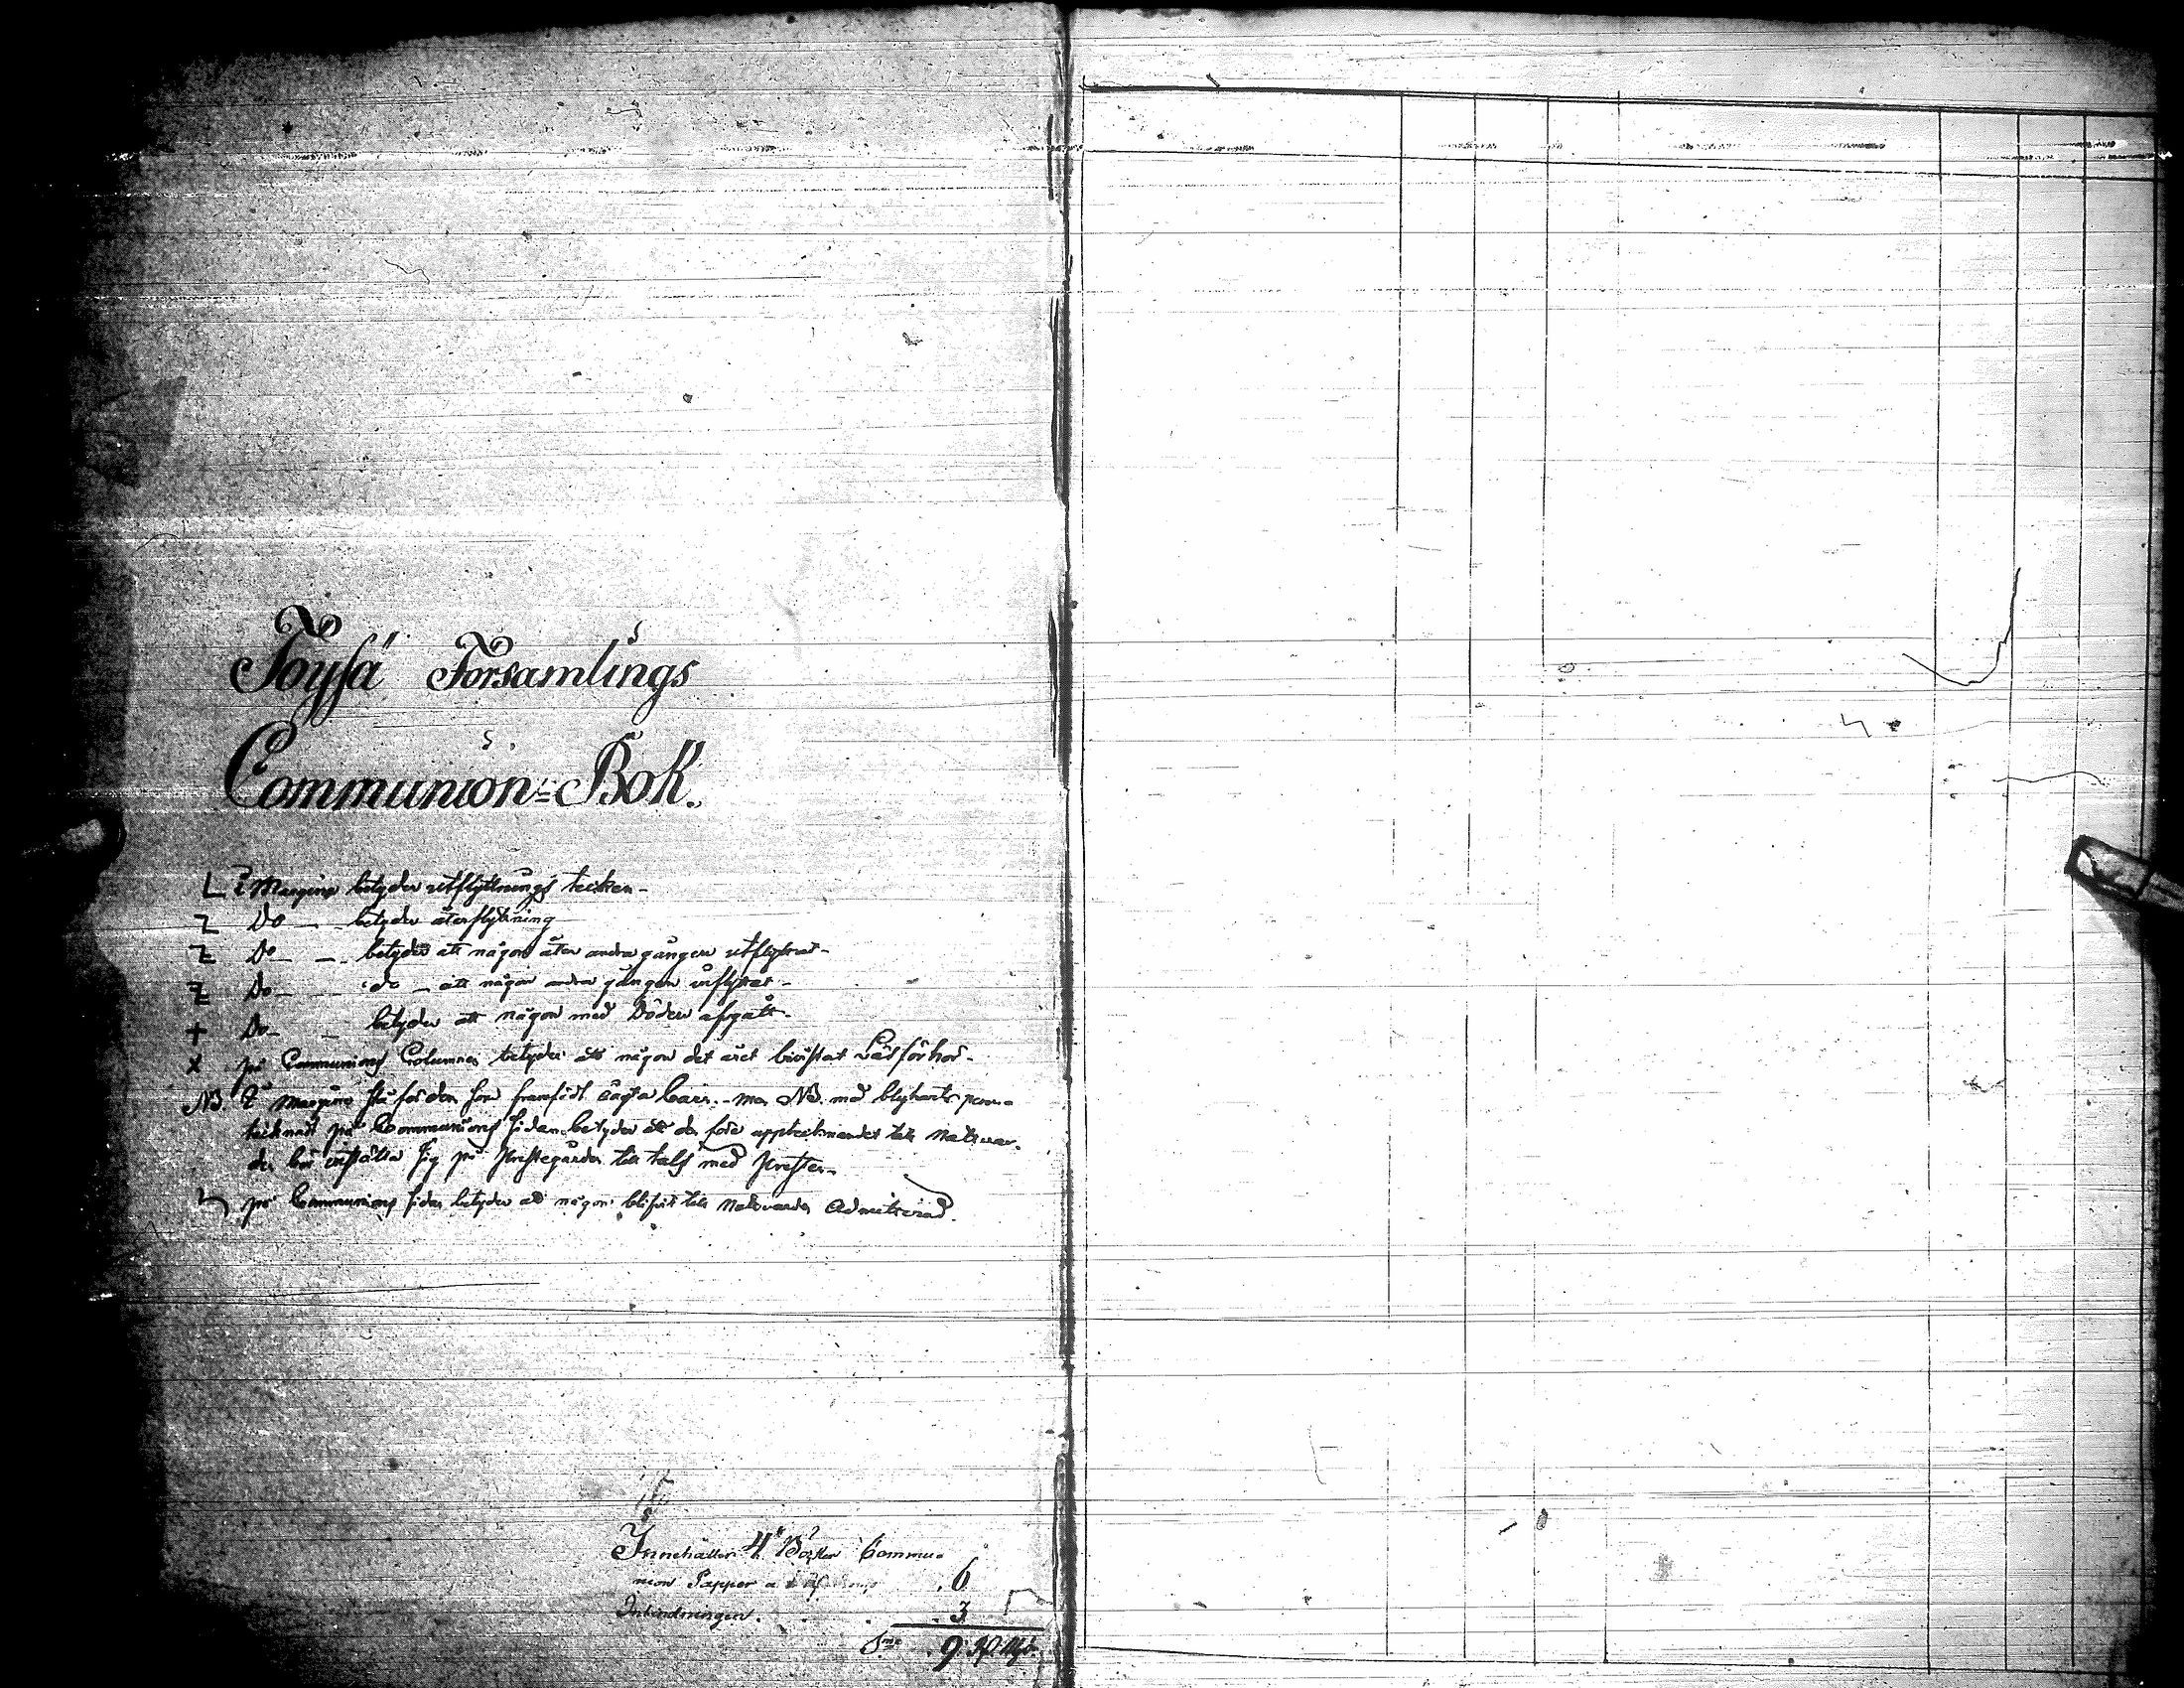 Töysä Församlings
Communion=Bok.
L i Margine betyder utflyttnings tecken-
Do — betyder återflyttning
Z Do — betyder att någon åter andra gången utflyttat-
Do — do — att någon andra gången inflyttat-
+ Do — betyder att någon med Döden afgått-
x på Communions Columnen betyder att någon det året bevistat Läsförhör-
NB. i Margine för den som framfödt oägta barn.- men NB. med blyherts penna
tecknadt på Communions sidan betyder att den före upptecknandet till Nattvar-
den bör inställa sig på Prestegården till tals med Presten-
på Communions sidan betyder att någon blifvit till Nattvarden Admitterad.
Innehåller 4 Böcker Commu-
nion Papper a 6
Inbindningen . . . 3
S:ma . 9